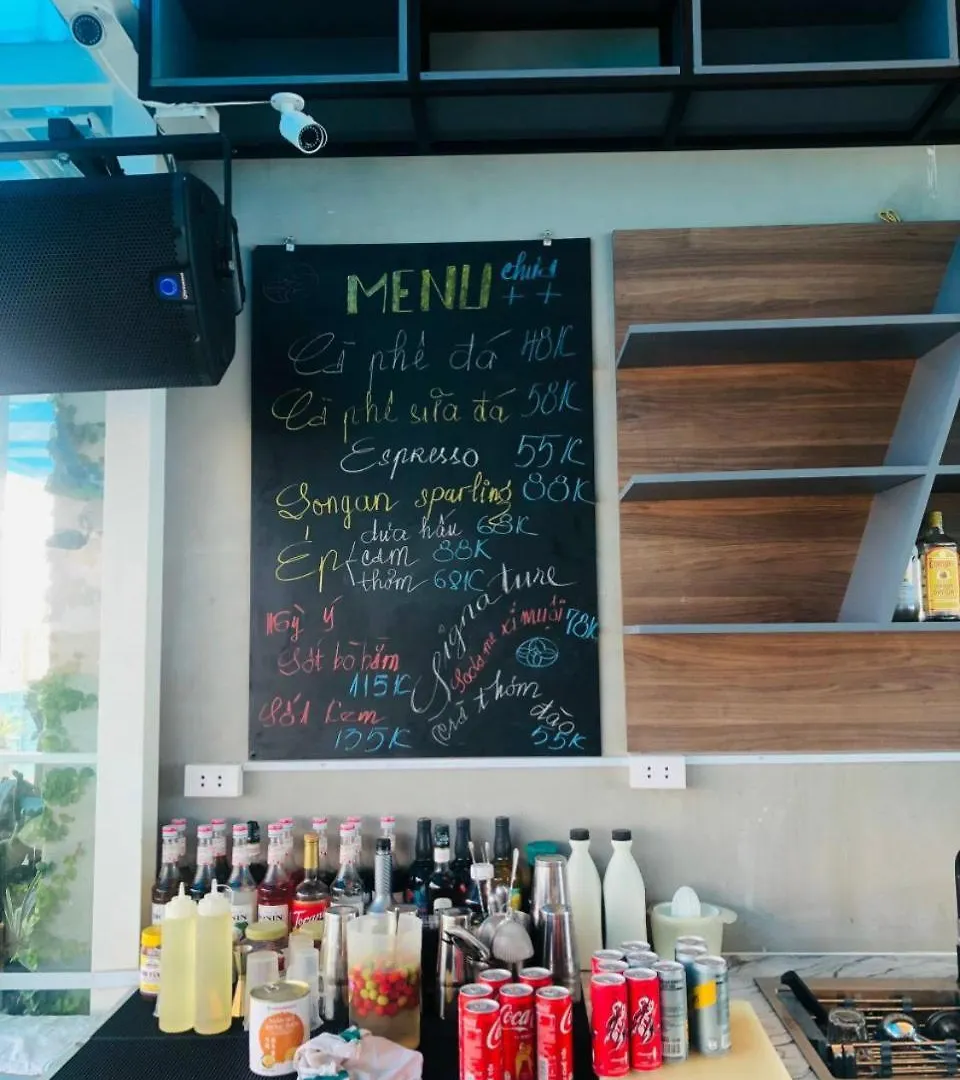 MENU
++
Cà phê đá 48K
Cà phê sữa đá 58K
Espresso 55K
Longan sparling 88K
Ép
dưa hấu 68K
cam 88K
thơm 68K
Signature
Soda me xí muội 78K
thơm
đào
55K
Mỳ ý
Sốt bò bằm
115K
Sốt Kem
135K
MONIN
Torani
Coca